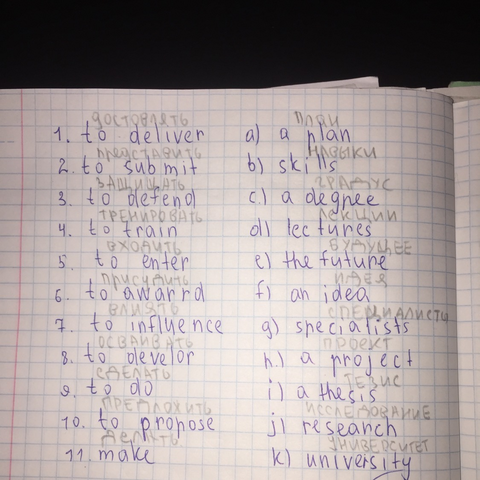 доставлять план
1. to deliver a) a plan
представить навыки
2. to submit b) skills
защищать градус
3. to defend c) a degree
тренировать лекции
4. to train d) lectures
входить будущее
5. to enter e) the future
присудить идея
6. to awarrd f) an idea
влиять специалисты
7. to influence g) specialists
осваивать проект
8. to develor h.) a project
сделать тезис
9. to do i) a thesis
предложить исследование
10. to propose j) research
делать университет
11. make k) university